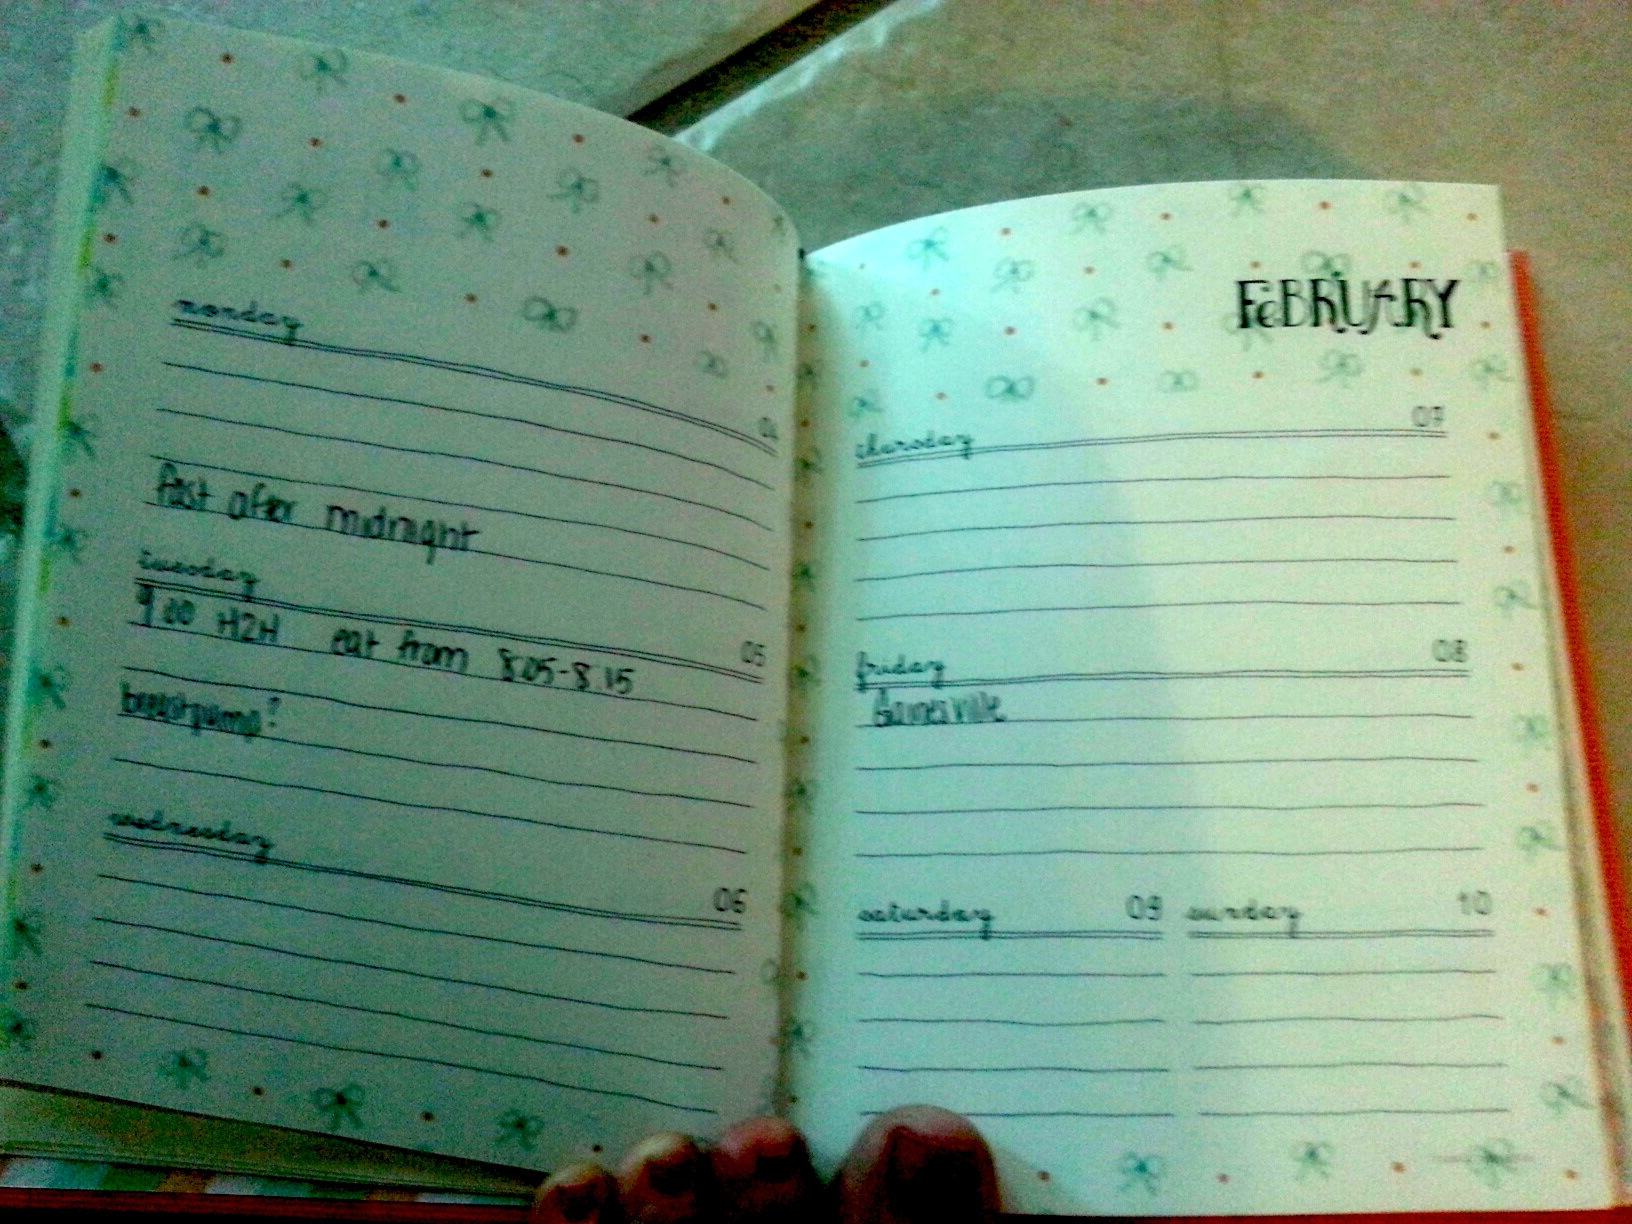 monday
04
fast after midnight
tuesday
05
9:00 H2H eat from 8:05-8:15
breastpump?
wednesday
06
FEBRUARY
thursday 07
friday 08
Gainesville
saturday 09 sunday 10